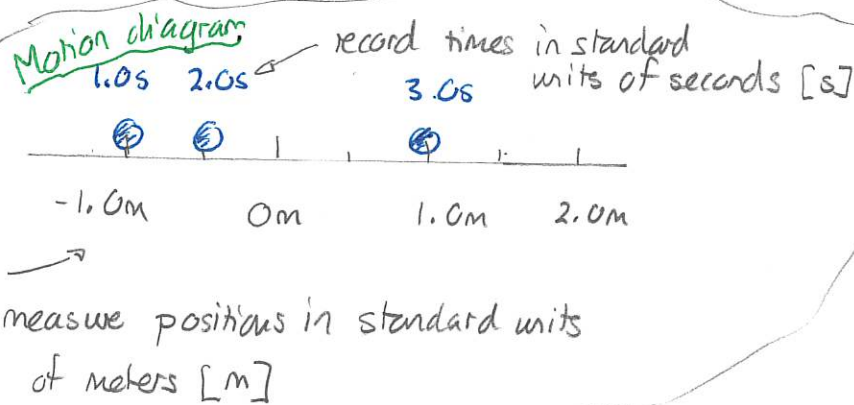 Motion diagram
record times in standard
units of seconds [s]
1.0s 2.0s 3.0s
-1.0m 0m 1.0m 2.0m
measure positions in standard units
of meters [m]